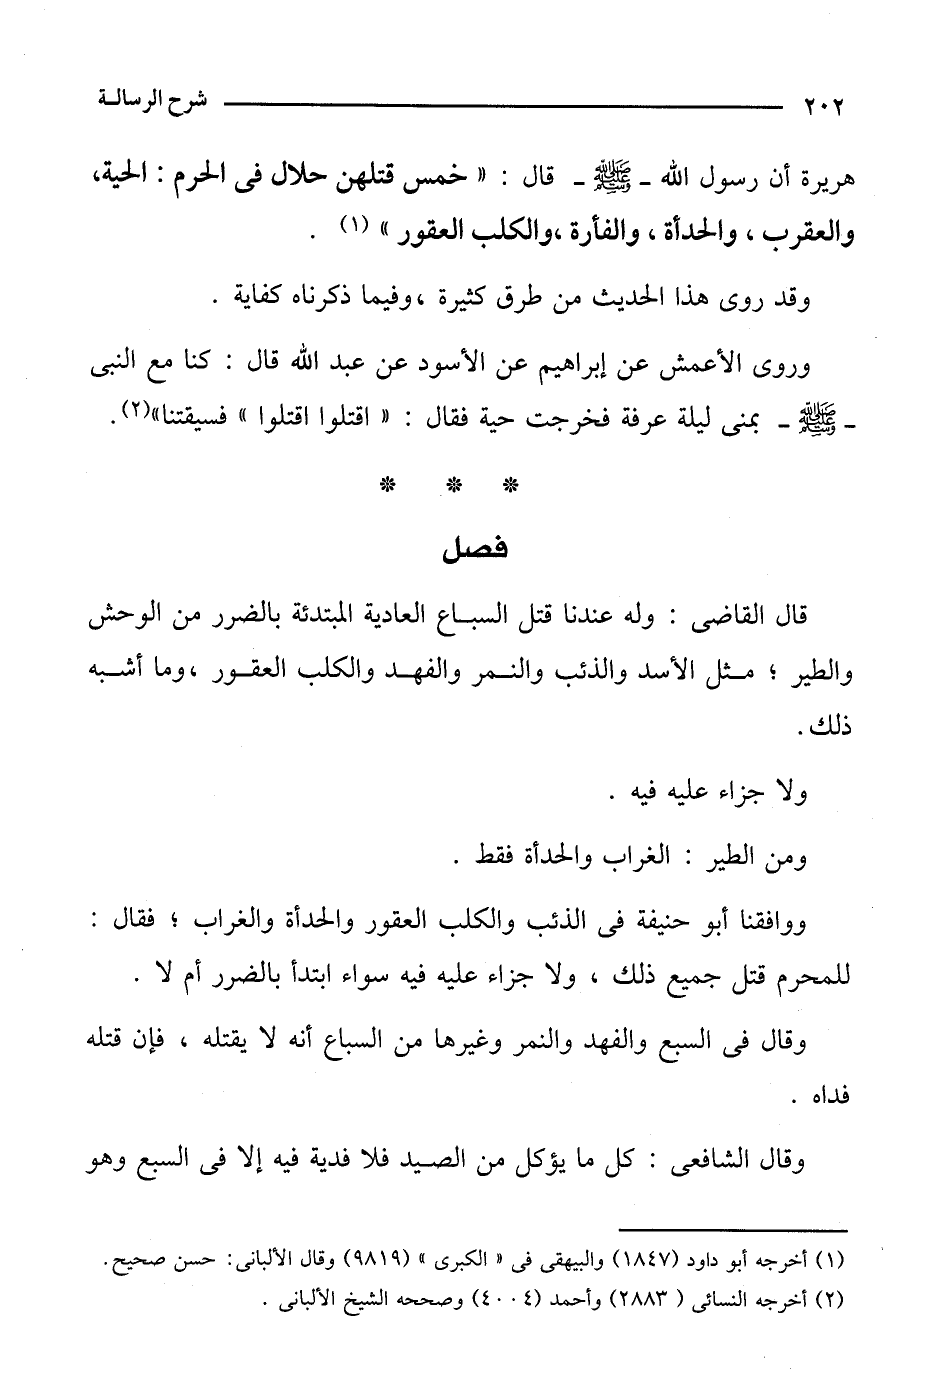 ٢٠٢ شرح الرسالة
هريرة أن رسول الله ـ ﷺ ـ قال : « خمس قتلهن حلال فى الحرم : الحية،
والعقرب ، والحدأة ، والفأرة ،والكلب العقور » (١) .
وقد روى هذا الحديث من طرق كثيرة ،وفيما ذكرناه كفاية .
وروى الأعمش عن إبراهيم عن الأسود عن عبد الله قال : كنا مع النبى
ـ ﷺ ـ بمنى ليلة عرفة فخرجت حية فقال : « اقتلوا اقتلوا » فسبقتنا»(٢).
* * *
فصل
قال القاضى : وله عندنا قتل السباع العادية المبتدئة بالضرر من الوحش
والطير ؛ مثل الأسد والذئب والنمر والفهد والكلب العقور ،وما أشبه
ذلك.
ولا جزاء عليه فيه .
ومن الطير : الغراب والحدأة فقط .
ووافقنا أبو حنيفة فى الذئب والكلب العقور والحدأة والغراب ؛ فقال :
للمحرم قتل جميع ذلك ، ولا جزاء عليه فيه سواء ابتدأ بالضرر أم لا .
وقال فى السبع والفهد والنمر وغيرها من السباع أنه لا يقتله ، فإن قتله
فداه .
وقال الشافعى : كل ما يؤكل من الصيد فلا فدية فيه إلا فى السبع وهو
(١) أخرجه أبو داود (١٨٤٧) والبيهقى فى « الكبرى » (٩٨١٩) وقال الألبانى: حسن صحيح.
(٢) أخرجه النسائى ( ٢٨٨٣) وأحمد (٤٠٠٤) وصححه الشيخ الألبانى .